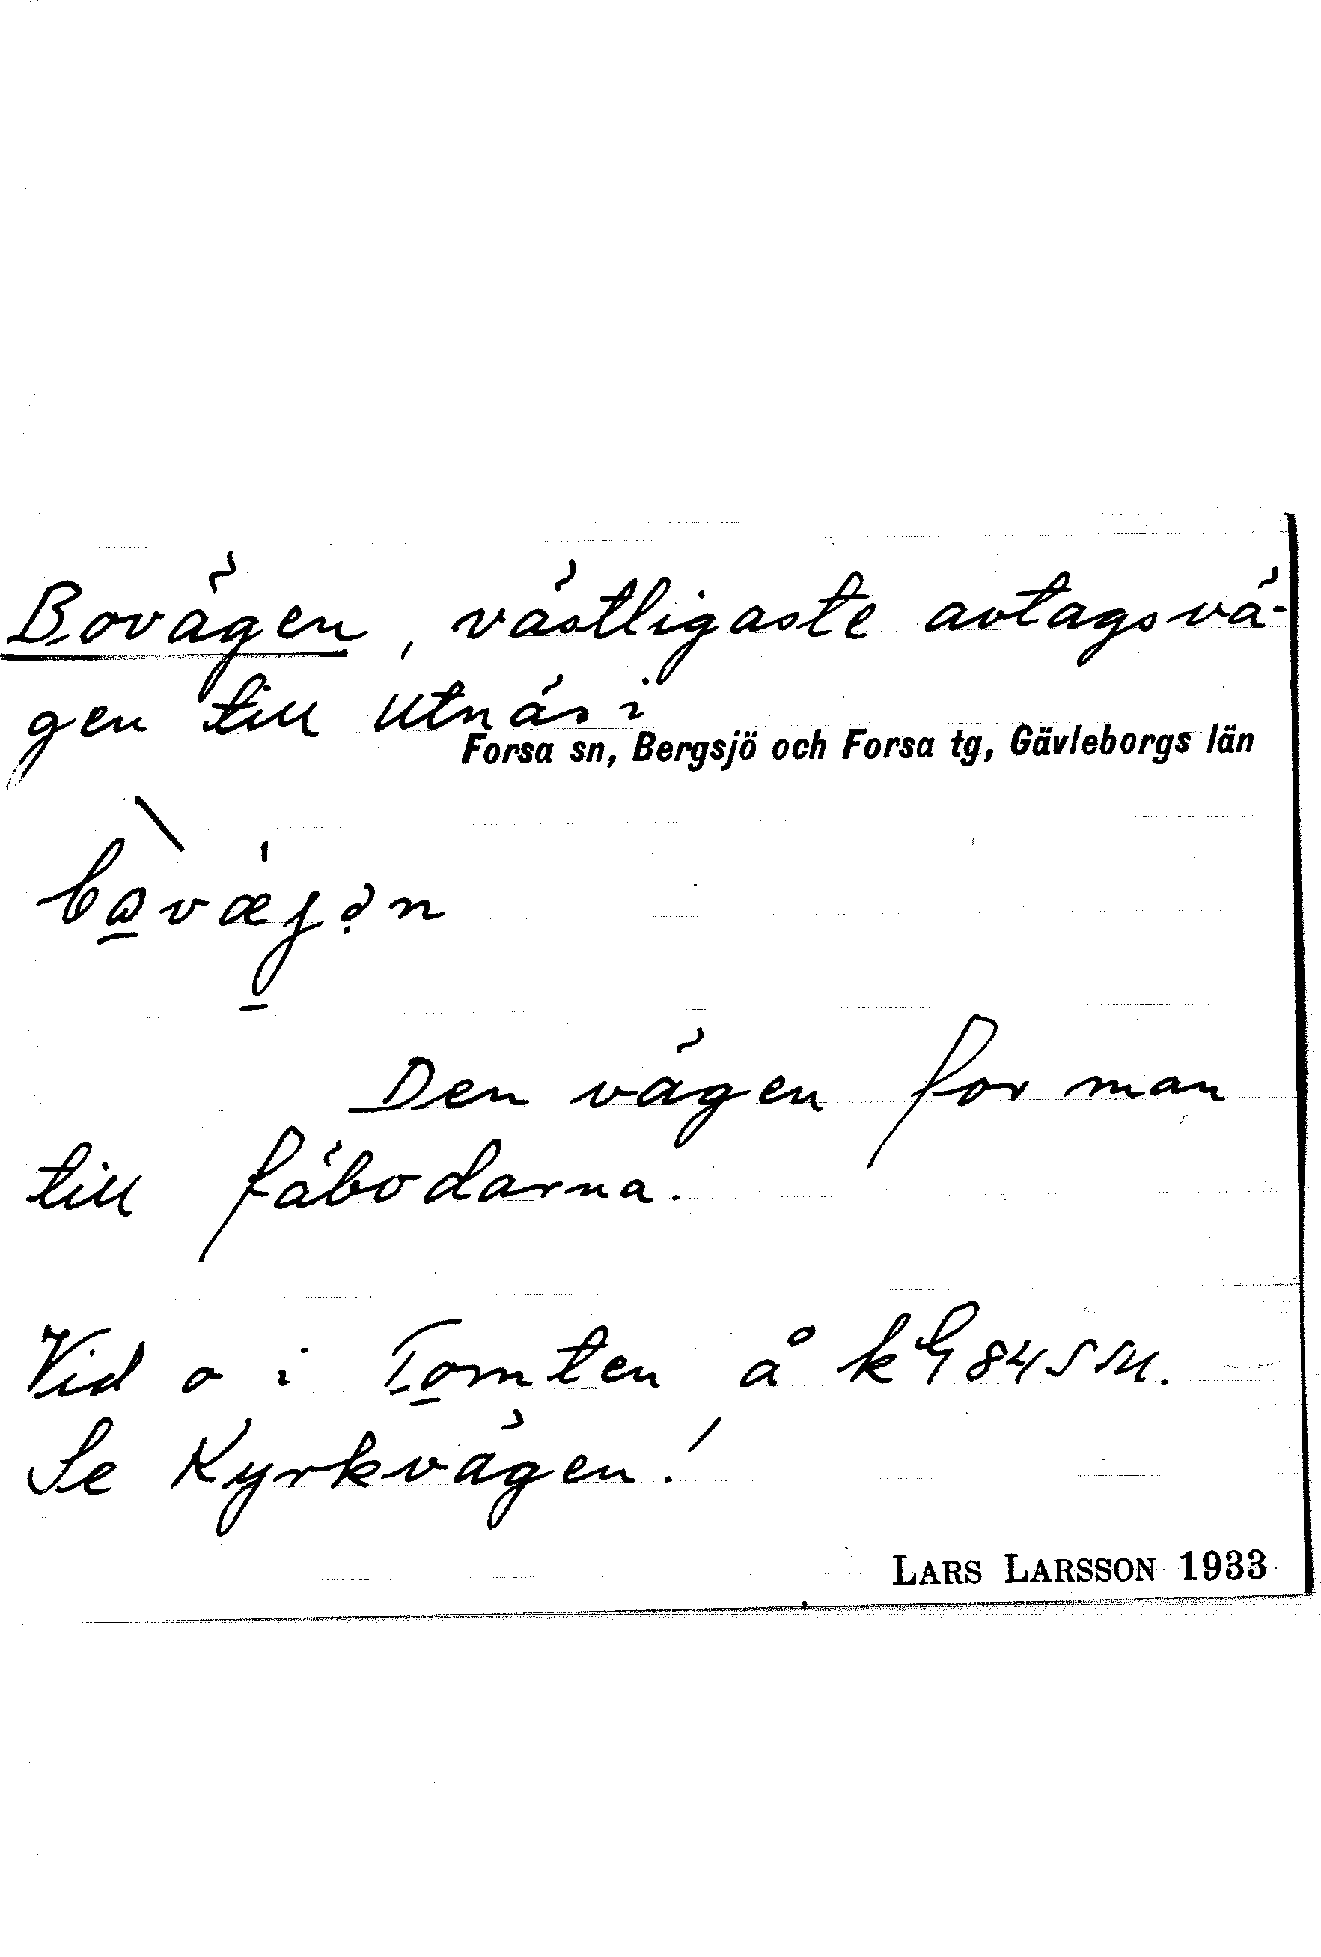 Bovägen, västligaste avtagsvä-
gen till Utnäs i
Forsa sn, Bergsjö och Forsa tg, Gävleborgs län
Den vägen for man
till fäbodarna.
Vid o i Tomten å k 84 SM.
Se Kyrkvägen!
LARS LARSSON 1933